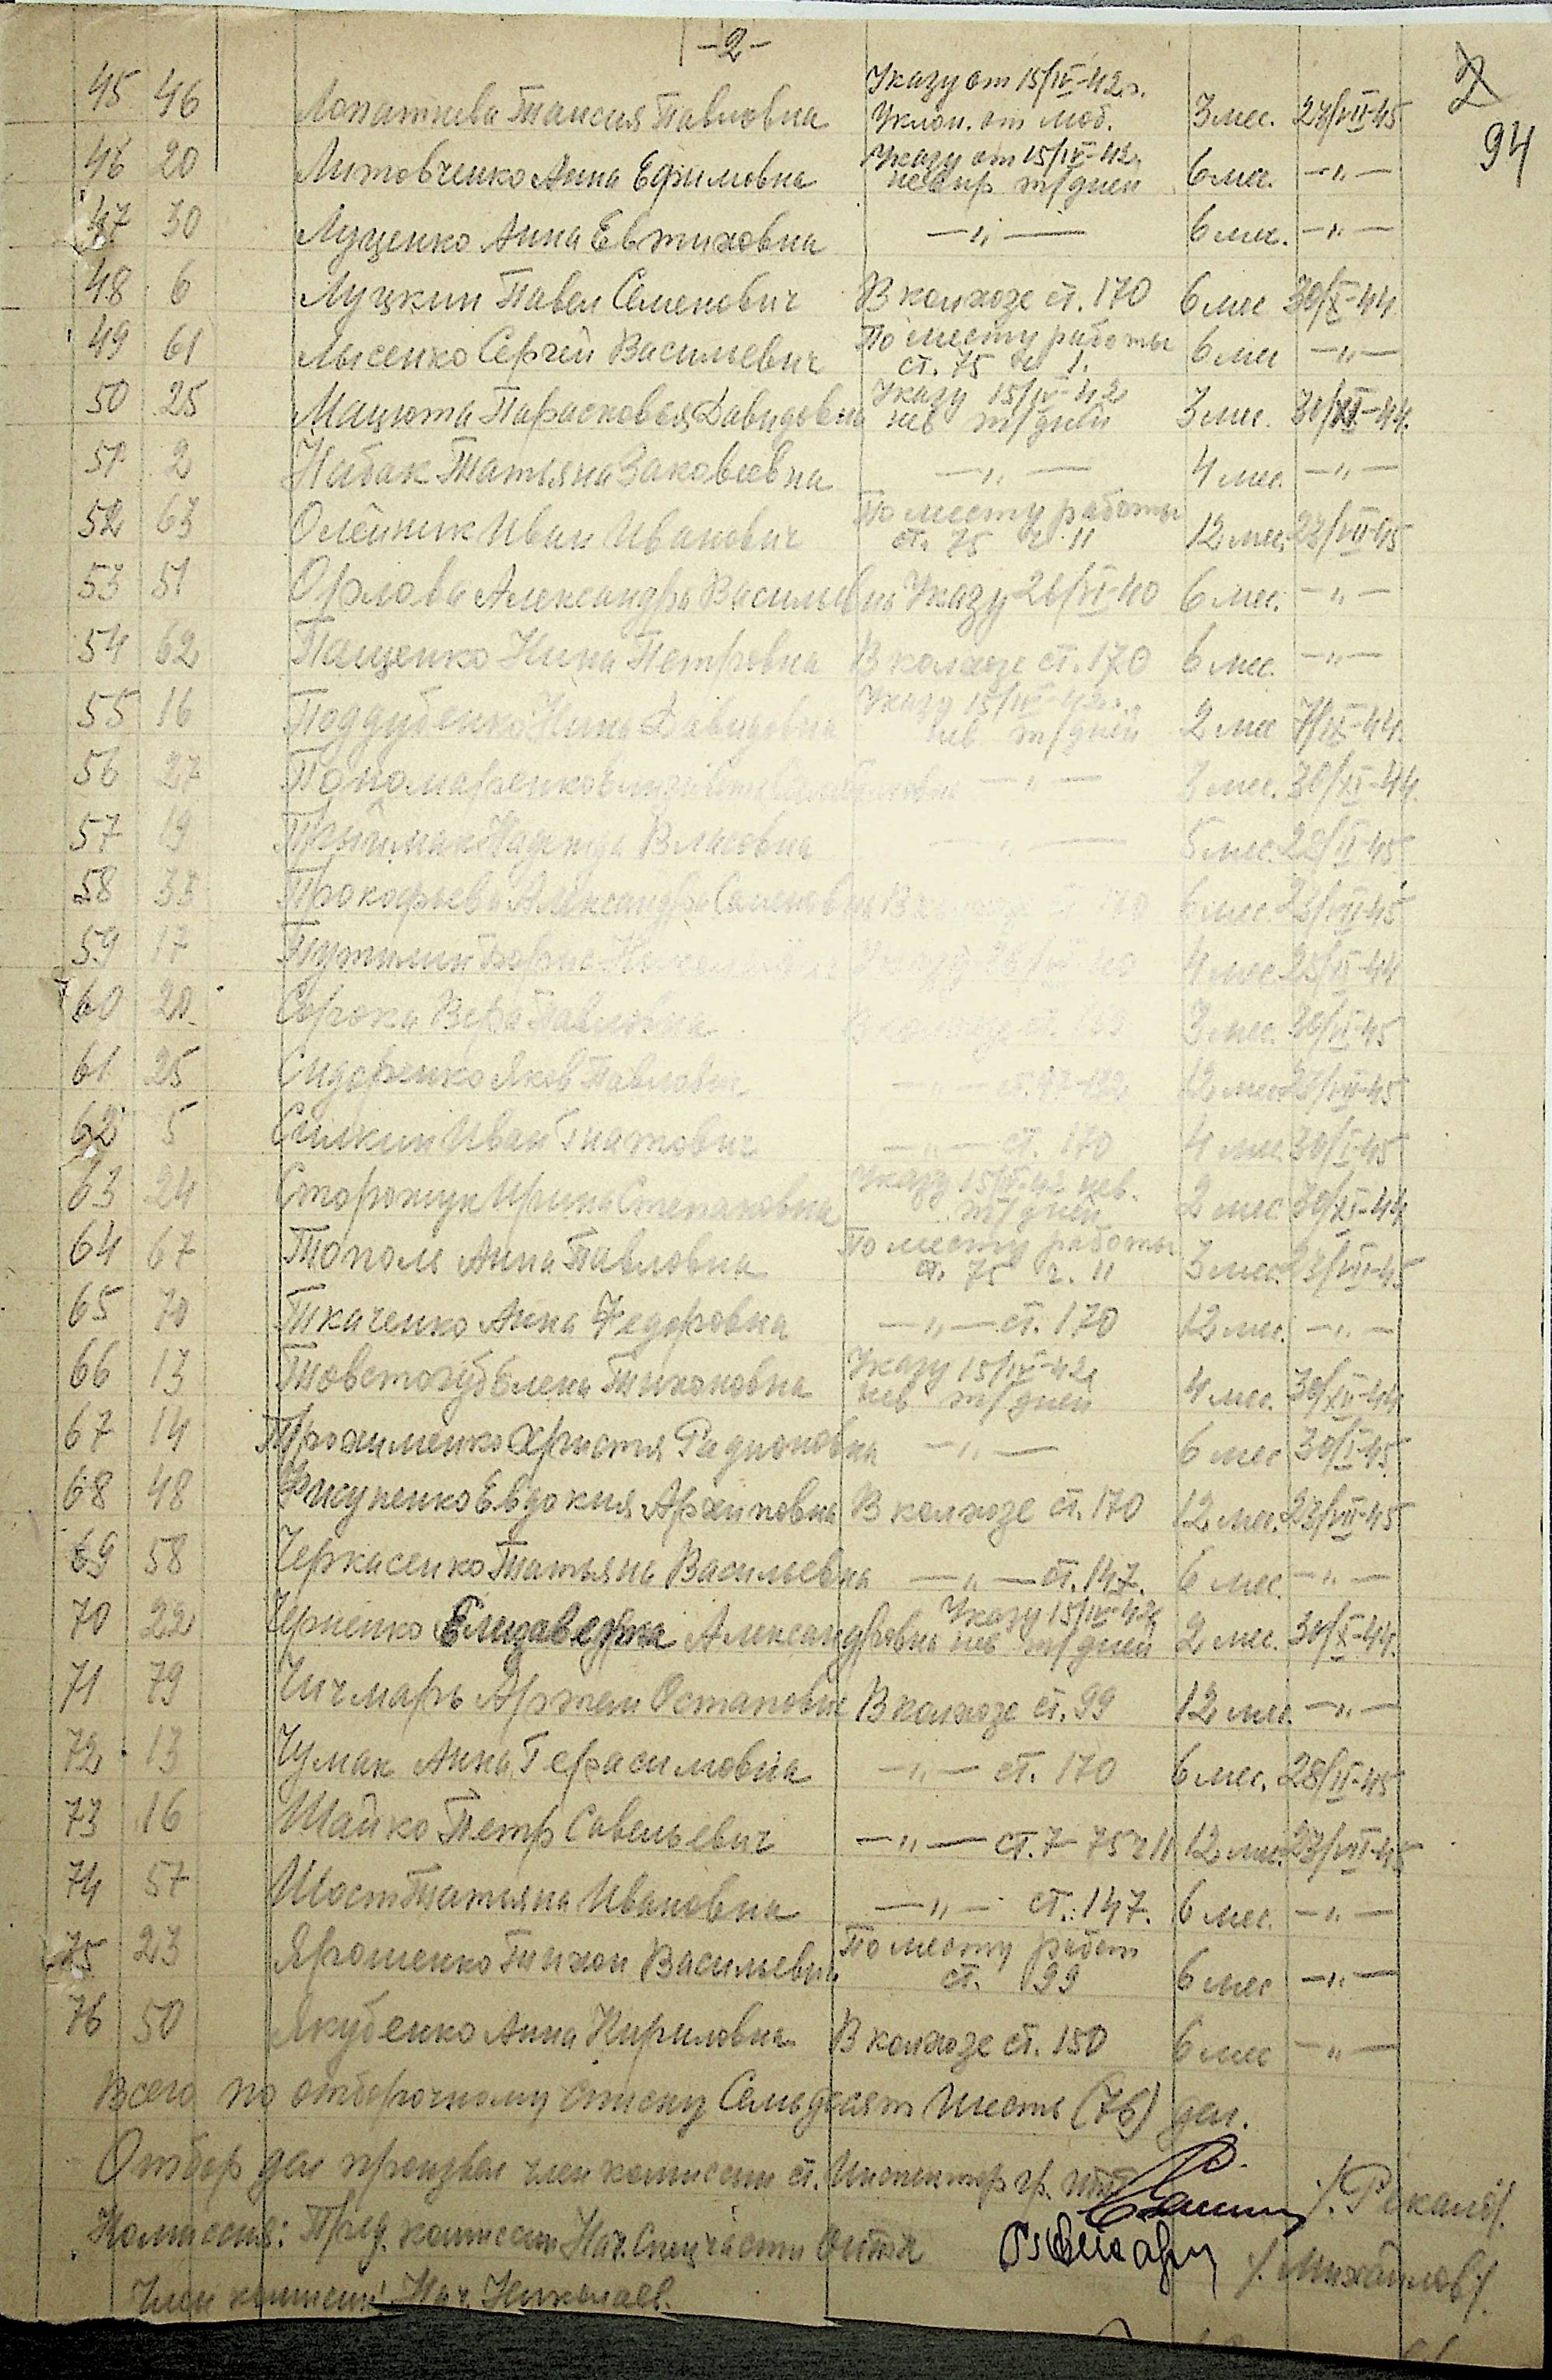 -2-
2
94
45 46 Лопатнева Таисия Павловна Указу от 15/IV-42 г. Уклон. от моб. 3 мес. 27/VII-45
46 20 Литовченко Анна Ефимовна Указу от 15/IV-42 т/дней 6 мес. -"-
47 30 Луценко Анна Евтиховна -"- 6 мес. -"-
48 6 Луцкин Павел Семенович В колхозе ст. 170 6 мес 30/X-44
49 61 Лысенко Сергей Васильевич По месту работы ст. 75 ч 1. 6 мес -"-
50 25 Мацюта Парасковья Давидовна Указу 15/IV-42 нев т/дней 3 мес. 30/XI-44.
51 2 Набак Татьяна -"- 4 мес. -"-
52 63 Олейник Иван Иванович По месту работы ст. 75 ч. II 12 мес. 23/VII-45
53 51 Орлова Александра Васильевна Указу 26/VI-40 6 мес. -"-
54 62 Пащенко Нина Петровна В колхозе ст. 170 6 мес. -"-
55 16 Поддубенко Нина Давидовна Указу 15/IV-42 г. нев. т/дней 2 мес 7/IX-44.
56 27 Пономаренко -"- 3 мес. 30/XI-44.
57 19 Прыймак Надежда Власовна -"- 5 мес. 28/II-45
58 33 Прокофьева Александра Семеновна В 170 6 мес. 23/VII-45
59 17 Борис 4 мес 25/XI-44
60 20 Сорока Вера Павловна 3 мес.
61 25 Сидоренко Яков Павлович -"- 12 мес 23/VII-45
62 5 Силкин Иван Гнатович -"- ст. 170 4 мес. 30/I-45
63 24 Сторожук Ирина Степановна Указу 15/IV-42 нев. т/дней 2 мес. 30/XI-44
64 67 Тополь Анна Павловна По месту работы ст. 75 ч. II 3 мес. 23/VII-45
65 70 Ткаченко Анна Федоровна -"- ст. 170 12 мес. -"-
66 13 Товстогуб Елена Тихоновна Указу 15/IV-42 нев т/дней 4 мес. 30/XII-44
67 14 Трохименко Христя Радионовна -"- 6 мес 30/I-45
68 48 Евдокия Архиповна В колхозе ст. 170 12 мес. 23/VII-45
69 58 Черкасенко Татьяна Васильевна -"- ст. 147. 6 мес. -"-
70 22 Черненко Елизаведта Александровна Указу 15/IV-42 нев т/дней 2 мес. 30/X-44.
71 79 Чичмарь Артем Остапович В колхозе ст. 99 12 мес. -"-
72 13 Чумак Анна Герасимовна -"- ст. 170 6 мес. 28/II-45
73 16 Шайко Петр Савельевич -"- ст. 7-75 ч II 12 мес. 23/VII-45
74 57 Шост Татьяна Ивановна -"- ст. 147. 6 мес. -"-
75 23 Ярошенко Тихон Васильевич По месту работ ст. 99 6 мес -"-
76 50 Якубенко Анна Кириловна В колхозе ст. 150 6 мес -"-
Всего по отборочному списку Семьдесят Шесть (76) дел.
Отбор дел произвел член комиссии ст. Инспектор гр. /. Рекало/.
Комиссия: Пред. комиссии Нач. Спец части /. Михайлов/.
Член комиссии: Нач.